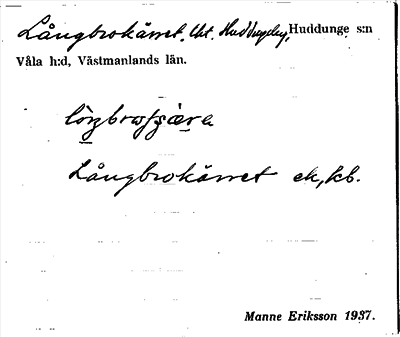 Långbrokärret, Ut. Huddungeby, Huddunge s:n
Våla h:d, Västmanlands län.
Långbrokärret ek, kb.
Manne Eriksson 1937.